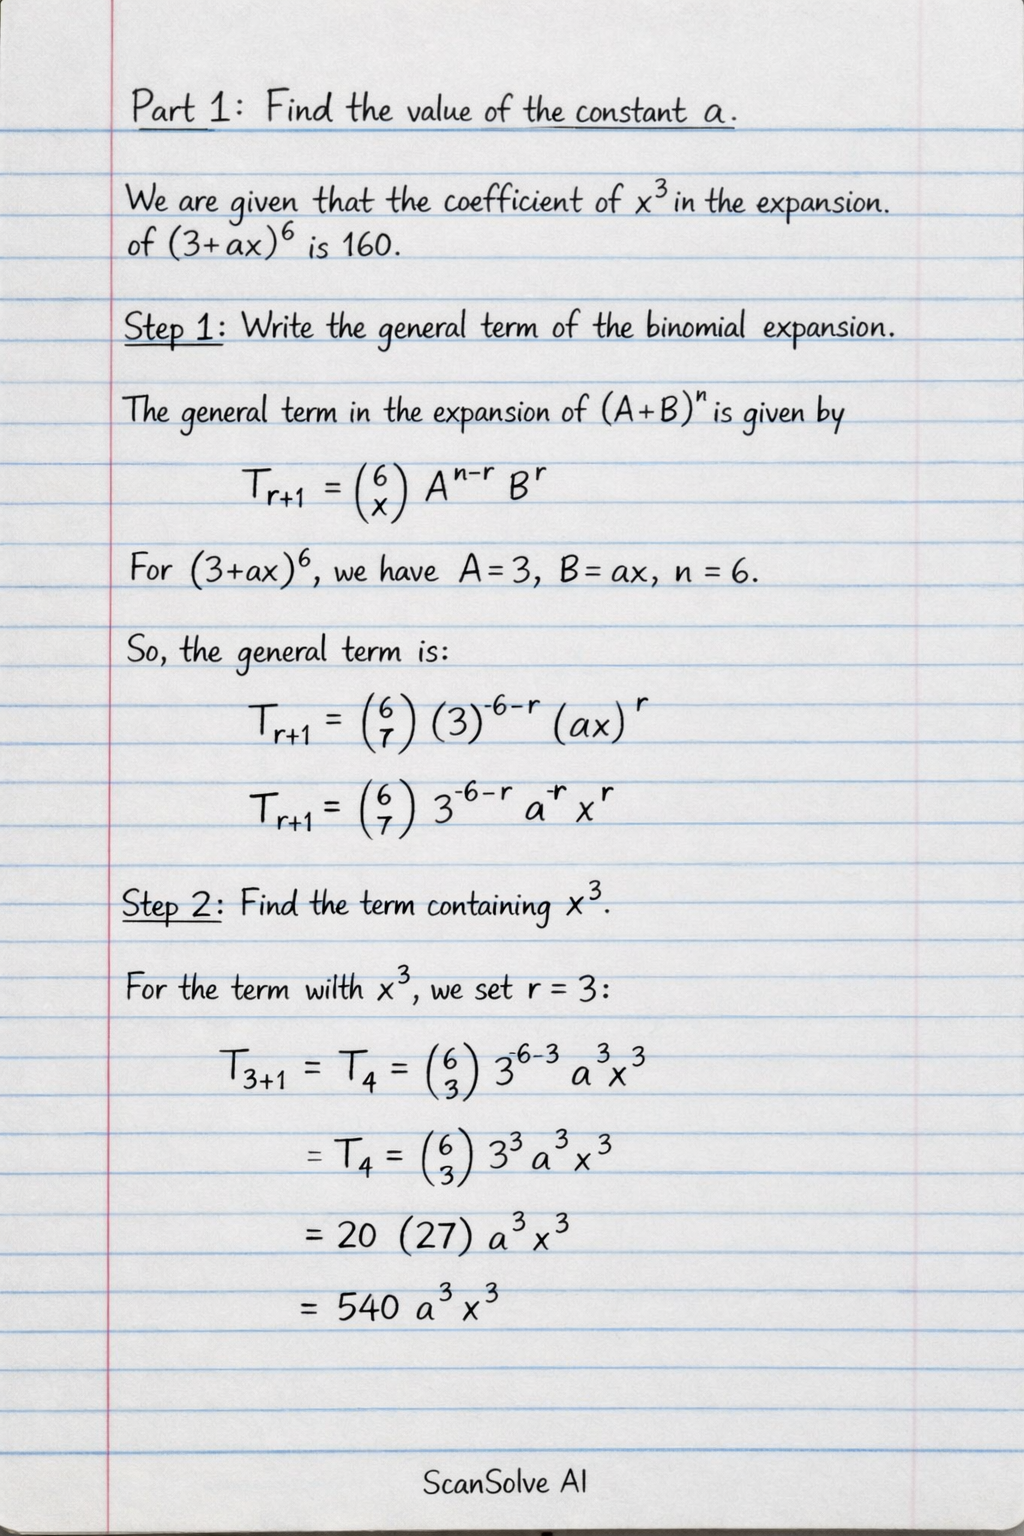 Part 1: Find the value of the constant a.
We are given that the coefficient of x³ in the expansion.
of (3+ax)⁶ is 160.
Step 1: Write the general term of the binomial expansion.
The general term in the expansion of (A+B)ⁿ is given by
T_{r+1} = (6 x) A^{n-r} B^r
For (3+ax)⁶, we have A = 3, B = ax, n = 6.
So, the general term is:
T_{r+1} = (6 7) (3)^{-6-r} (ax)^r
T_{r+1} = (6 7) 3^{-6-r} a^{-r} x^r
Step 2: Find the term containing x³.
For the term wilth x³, we set r = 3:
T_{3+1} = T_4 = (6 3) 3^{-6-3} a³x³
= T_4 = (6 3) 3³ a³ x³
= 20 (27) a³ x³
= 540 a³ x³
ScanSolve AI